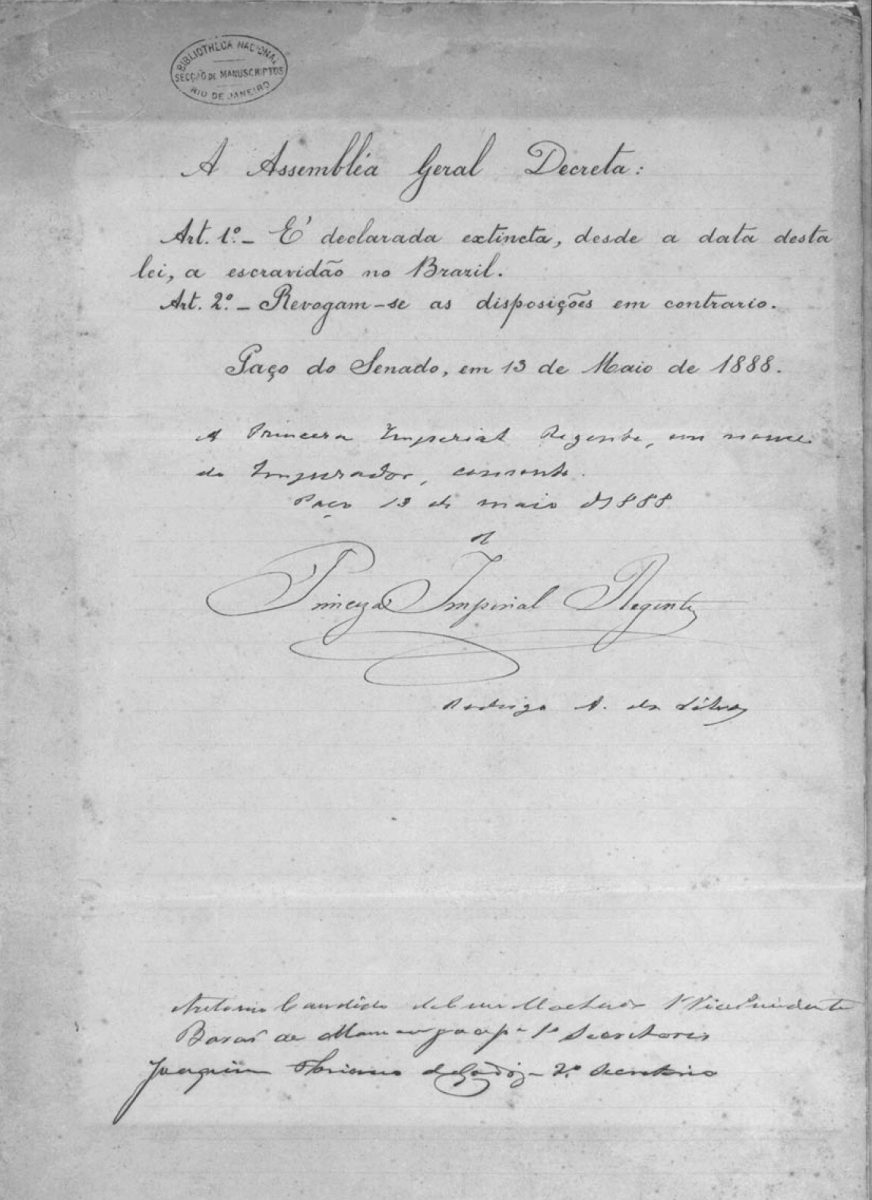 BIBLIOTHECA NACIONAL
SECÇÃO DE MANUSCRIPTOS
RIO DE JANEIRO
A Assembléa Geral Decreta:
Art. 1.º - E' declarada extincta, desde a data desta
lei, a escravidão no Brazil.
Art. 2.º - Revogam-se as disposições em contrario.
Paço do Senado, em 13 de Maio de 1888.
A Princeza Imperial Regente, em nome
do Imperador, consente.
Paço 13 de maio de 1888
A
Princeza Imperial Regente
Rodrigo A. da Silva
Antonio Candido da Cruz Machado 1º Vice Presidente
Barão de Mamanguape 1º Secretario
Joaquim Floriano de Godoy - 2.º Secretario